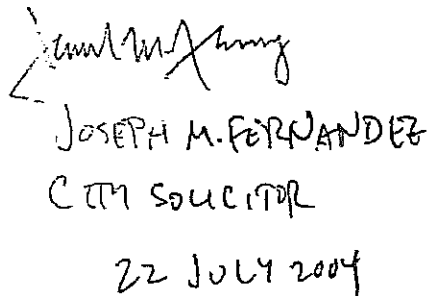 JOSEPH M. FERNANDEZ
CITY SOLICITOR
22 JULY 2004